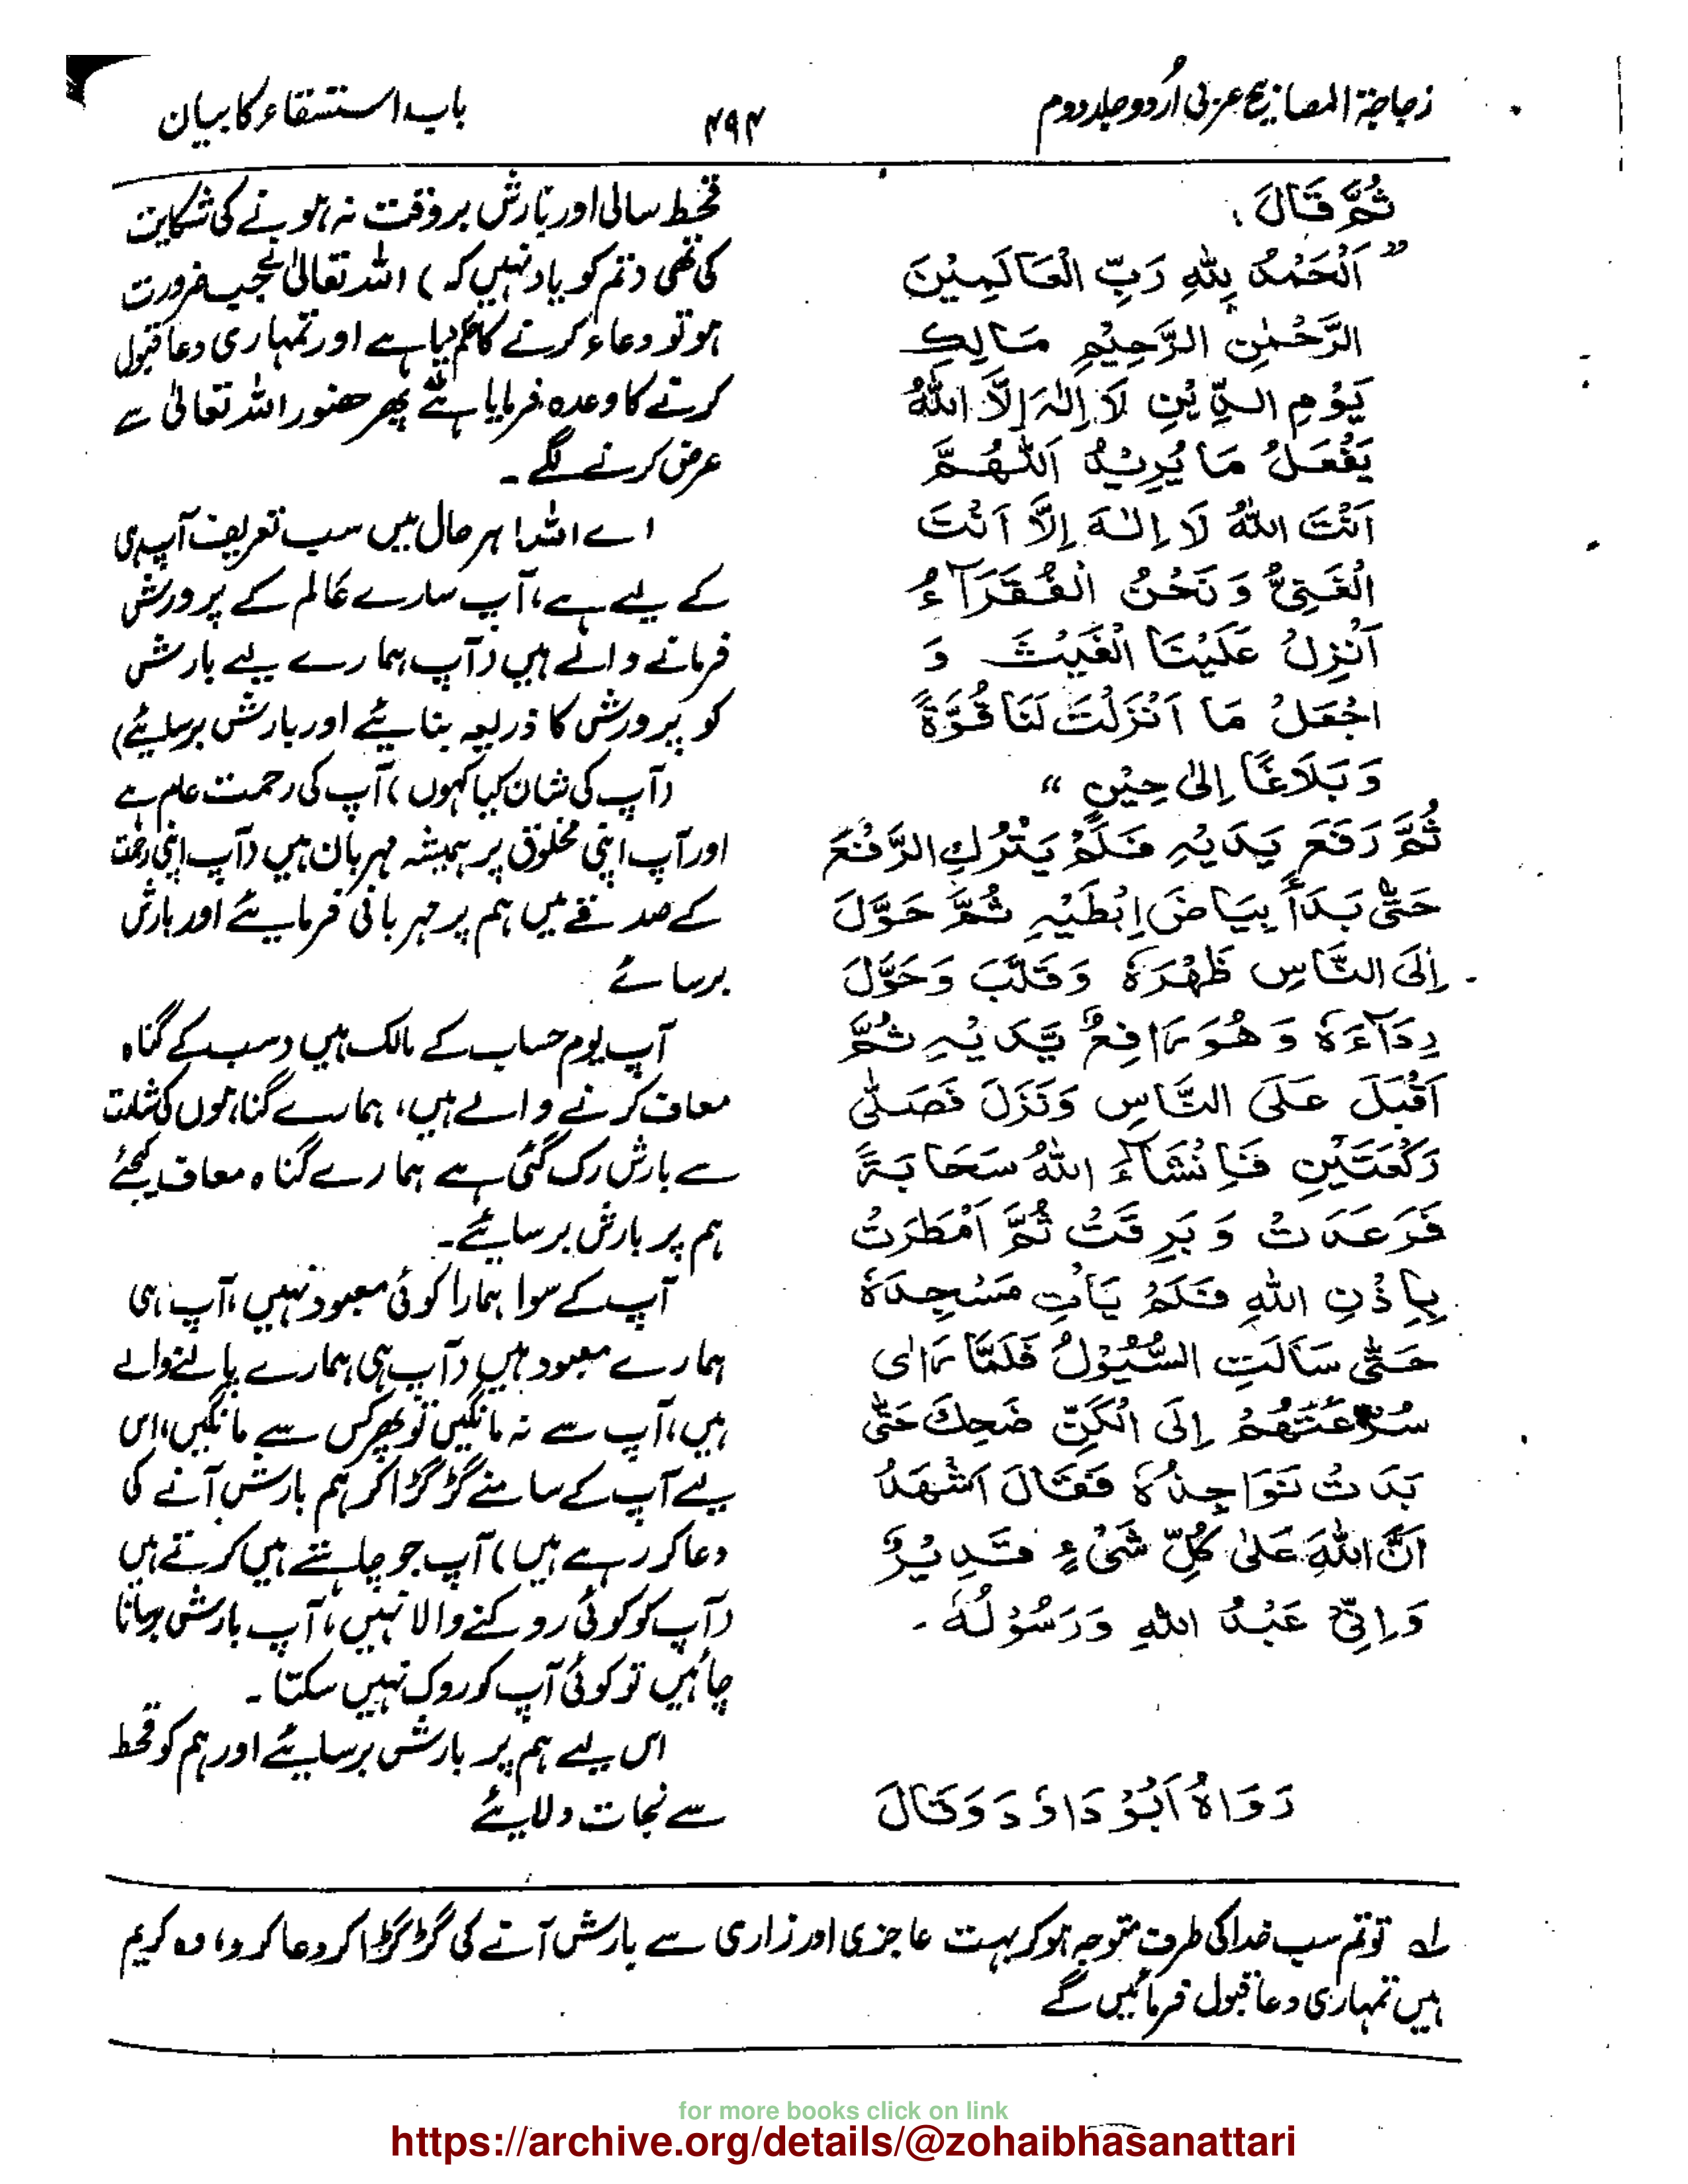 زجاجۃ المصابیح عربی اُردو جلد دوم
۴۹۴
باب استسقاء کا بیان
ثُمَّ قَالَ،
"اَلْحَمْدُ لِلّٰهِ رَبِّ الْعَالَمِيْنَ
الرَّحْمٰنِ الرَّحِيْمِ مَالِكِ
يَوْمِ الدِّيْنِ لَا اِلٰهَ اِلَّا اللّٰهُ
يَفْعَلُ مَا يُرِيْدُ اَللّٰهُمَّ
اَنْتَ اللّٰهُ لَا اِلٰهَ اِلَّا اَنْتَ
الْغَنِيُّ وَنَحْنُ الْفُقَرَآءُ
اَنْزِلْ عَلَيْنَا الْغَيْثَ وَ
اجْعَلْ مَا اَنْزَلْتَ لَنَا قُوَّةً
وَبَلَاغًا اِلٰى حِيْنٍ"
ثُمَّ رَفَعَ يَدَيْهِ فَلَمْ يَتْرُكِ الرَّفْعَ
حَتّٰى بَدَأَ بِيَاضَ اِبْطَيْهِ ثُمَّ حَوَّلَ
اِلَى النَّاسِ ظَهْرَهٗ وَقَلَّبَ وَحَوَّلَ
رِدَآءَهٗ وَهُوَ رَافِعٌ يَّدَيْهِ ثُمَّ
اَقْبَلَ عَلَى النَّاسِ وَنَزَلَ فَصَلّٰى
رَكْعَتَيْنِ فَاِنْشَآءَ اللّٰهُ سَحَابَةً
فَرَعَدَتْ وَبَرِقَتْ ثُمَّ اَمْطَرَتْ
بِاِذْنِ اللّٰهِ فَلَمْ يَأْتِ مَسْجِدَهٗ
حَتّٰى سَالَتِ السُّيُوْلُ فَلَمَّا رَاٰى
سُرْعَتَهُمْ اِلَى الْكَنِّ ضَحِكَ حَتّٰى
بَدَتْ نَوَاجِذُهٗ فَقَالَ اَشْهَدُ
اَنَّ اللّٰهَ عَلٰى كُلِّ شَيْءٍ قَدِيْرٌ
وَاِنِّيْ عَبْدُ اللّٰهِ وَرَسُوْلُهٗ۔
رَوَاهُ اَبُوْ دَاوٗدَ وَقَالَ
قحط سالی اور بارش بروقت نہ ہونے کی شکایت
کی تھی (تم کو یاد نہیں کہ) اللہ تعالیٰ نے جب ضرورت
ہو تو دعاء کرنے کا حکم دیا ہے اور تمہاری دعا قبول
کرنے کا وعدہ فرمایا ہے پھر حضور اللہ تعالیٰ سے
عرض کرنے لگے۔
اے اللہ! ہر حال میں سب تعریف آپ ہی
کے لیے ہے، آپ سارے عالم کے پرورش
فرمانے والے ہیں (آپ ہمارے لیے بارش
کو پرورش کا ذریعہ بنایئے اور بارش برسایئے)
(آپ کی شان کیا کہوں) آپ کی رحمت عام ہے
اور آپ اپنی مخلوق پر ہمیشہ مہربان ہیں (آپ اپنی رحمت
کے صدقے میں ہم پر مہربانی فرمایئے اور بارش
برسائے
آپ یوم حساب کے مالک ہیں (سب کے گناہ
معاف کرنے والے ہیں، ہمارے گناہوں کی شامت
سے بارش رک گئی ہے ہمارے گناہ معاف کیجئے
ہم پر بارش برسایئے۔
آپ کے سوا ہمارا کوئی معبود نہیں، آپ ہی
ہمارے معبود ہیں (آپ ہی ہمارے پالنے والے
ہیں، آپ سے نہ مانگیں تو پھر کس سے مانگیں، اس
لیے آپ کے سامنے گڑگڑا کر ہم بارش آنے کی
دعا کر رہے ہیں) آپ جو چاہتے ہیں کرتے ہیں
(آپ کو کوئی روکنے والا نہیں، آپ بارش برسانا
چاہیں تو کوئی آپ کو روک نہیں سکتا۔
اس لیے ہم پر بارش برسایئے اور ہم کو قحط
سے نجات دلایئے
لہ تو تم سب خدا کی طرف متوجہ ہو کر بہت عاجزی اور زاری سے بارش آنے کی گڑگڑا کر دعا کرو، وہ کریم
ہیں تمہاری دعا قبول فرمائیں گے
for more books click on link
https://archive.org/details/@zohaibhasanattari